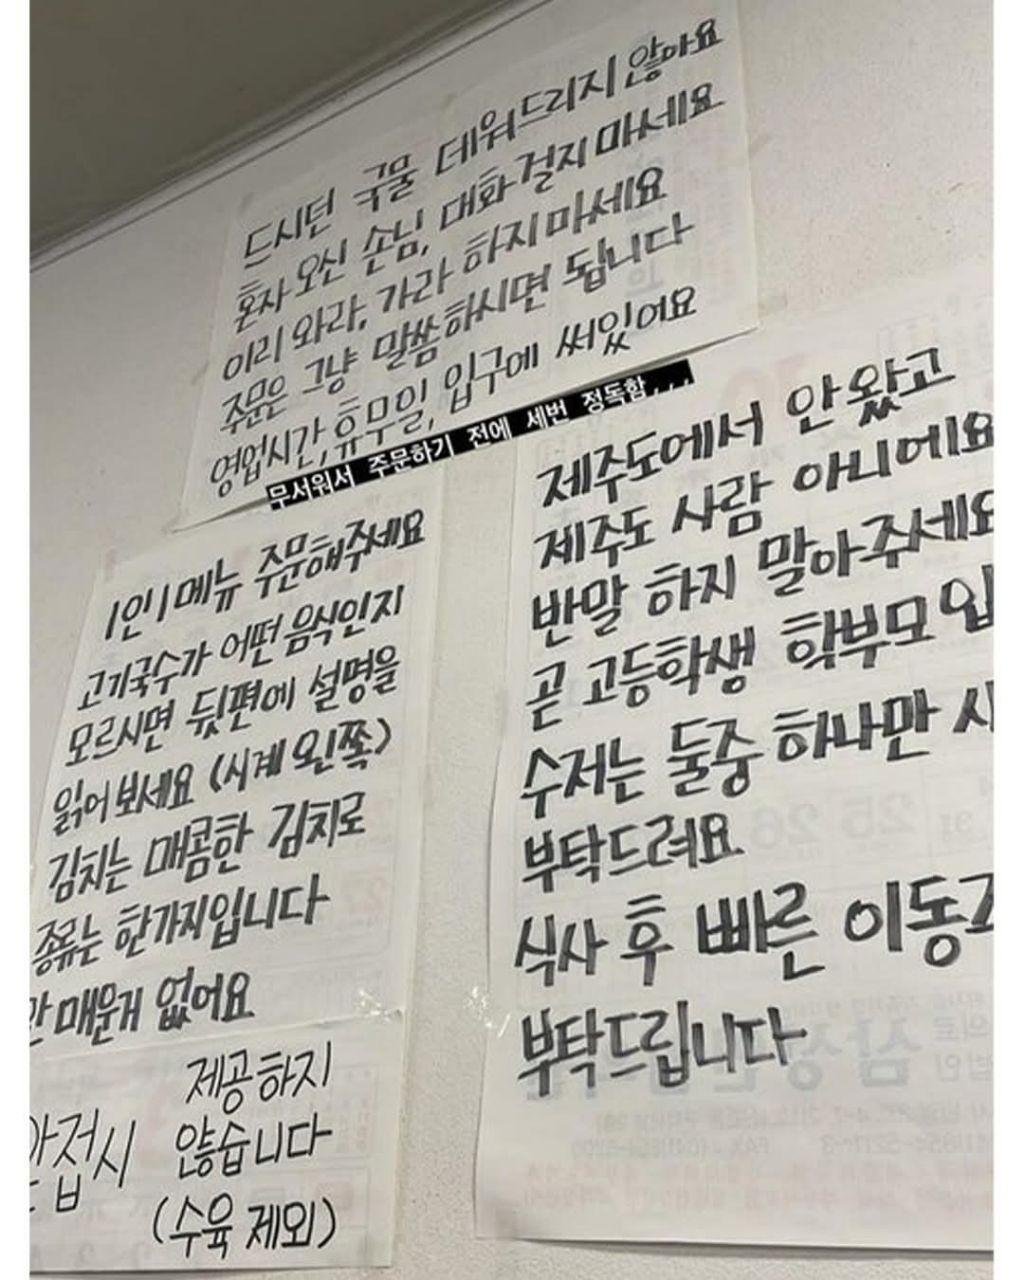 드시던 국물 데워드리지 않아요
혼자 오신 손님, 대화 걸지 마세요
이리 와라, 가라 하지마세요
주문은 그냥 말씀하시면 됩니다
영업시간, 휴무일, 입구에 써있어요
무서워서 주문하기 전에 세번 정독함...
1인 1메뉴 주문해주세요
고기국수가 어떤 음식인지
모르시면 뒷편에 설명을
읽어보세요 (시계 왼쪽)
김치는 매콤한 김치로
종류는 한가지입니다
안매운게 없어요
제공하지
앞접시 않습니다
(수육 제외)
제주도에서 안 왔고
제주도 사람 아니에요
반말 하지 말아주세요
곧 고등학생 학부모 입
수저는 둘중 하나만 사
부탁드려요
식사 후 빠른 이동
부탁드립니다